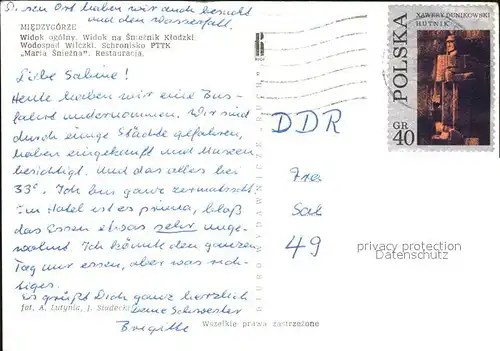 Diesen Ort haben wir auch besucht
und den Wasserfall.
MIĘDZYGÓRZE
Widok ogólny. Widok na Śnieżnik Kłodzki.
Wodospad Wilczki. Schronisko PTTK
„Maria Śnieżna". Restauracja.
Liebe Sabine!
Heute haben wir eine Bus-
fahrt unternommen. Wir sind
durch einige Städte gefahren,
haben eingekauft und Museen
besichtigt. Und das alles bei
33°. Ich bin ganz zermatscht.
Im Hotel ist es prima, bloß
das Essen etwas sehr unge-
wohnt. Ich könnte den ganzen
Tag nur essen, aber was rich-
tiges.
Es grüßt Dich ganz herzlich
Deine Schwester
Brigitte
fot. A. Lutynia, J. Siudecki
Wszelkie prawa zastrzeżone
BIURO WYDAWNICZE RUCH
XAWERY DUNIKOWSKI
HUTNIK
POLSKA
GR
40
DDR
Fra
Sab
49
privacy protection
Datenschutz